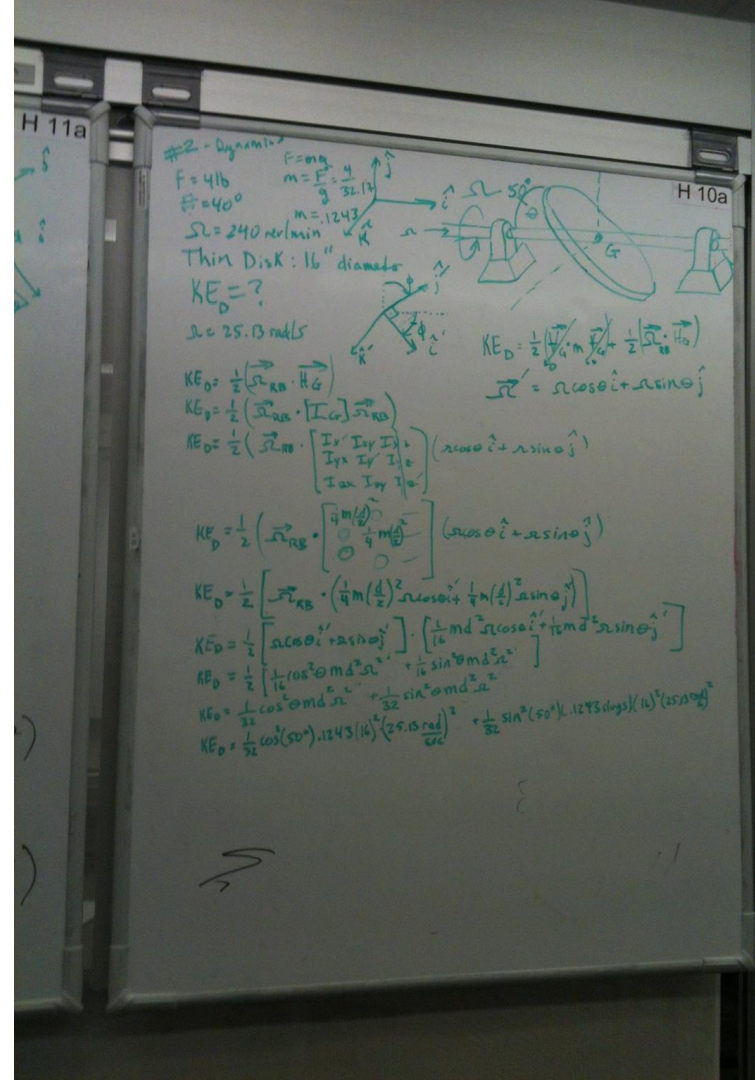 H 11a
H 10a
#2 - Dynamics
F = 4lb
F = mg
m = F/g = 4/32.17
m = .1243
= 40°
Ω = 240 rev/min
Thin Disk : 16" diameter
KE_D = ?
Ω = 25.13 rad/s
ĵ
î
k̂
Ω
50°
θ
Ω
G
φ
ĵ'
φ
î'
k̂'
KE_D = 1/2 (V_G · m V_G) + 1/2 (Ω_RB · H_G)
Ω' = Ωcosθ î + Ωsinθ ĵ
KE_D = 1/2 (Ω_RB · H_G)
KE_D = 1/2 (Ω_RB · [I_G] Ω_RB)
KE_D = 1/2 (Ω_RB · [Ix' Ixy Ixz
Iyx Iy' Iyz
Izx Izy Iz'] (Ωcosθ î + Ωsinθ ĵ)
KE_D = 1/2 (Ω_RB · [1/4 m(d/2)² 0
0 1/4 m(d/2)²
0 0] (Ωcosθ î + Ωsinθ ĵ)
KE_D = 1/2 [Ω_RB · (1/4 m(d/2)² Ωcosθ î' + 1/4 m(d/2)² Ωsinθ ĵ')]
KE_D = 1/2 [Ωcosθ î' + Ωsinθ ĵ'] · [1/16 md² Ωcosθ î' + 1/16 md² Ωsinθ ĵ']
KE_D = 1/2 [1/16 cos²θ md² Ω² + 1/16 sin²θ md² Ω²]
KE_D = 1/32 cos²θ md² Ω² + 1/32 sin²θ md² Ω²
KE_D = 1/32 cos²(50°) .1243 (16)² (25.13 rad/sec)² + 1/32 sin²(50°) (.1243 slugs) (16)² (25.13 rad/s)²